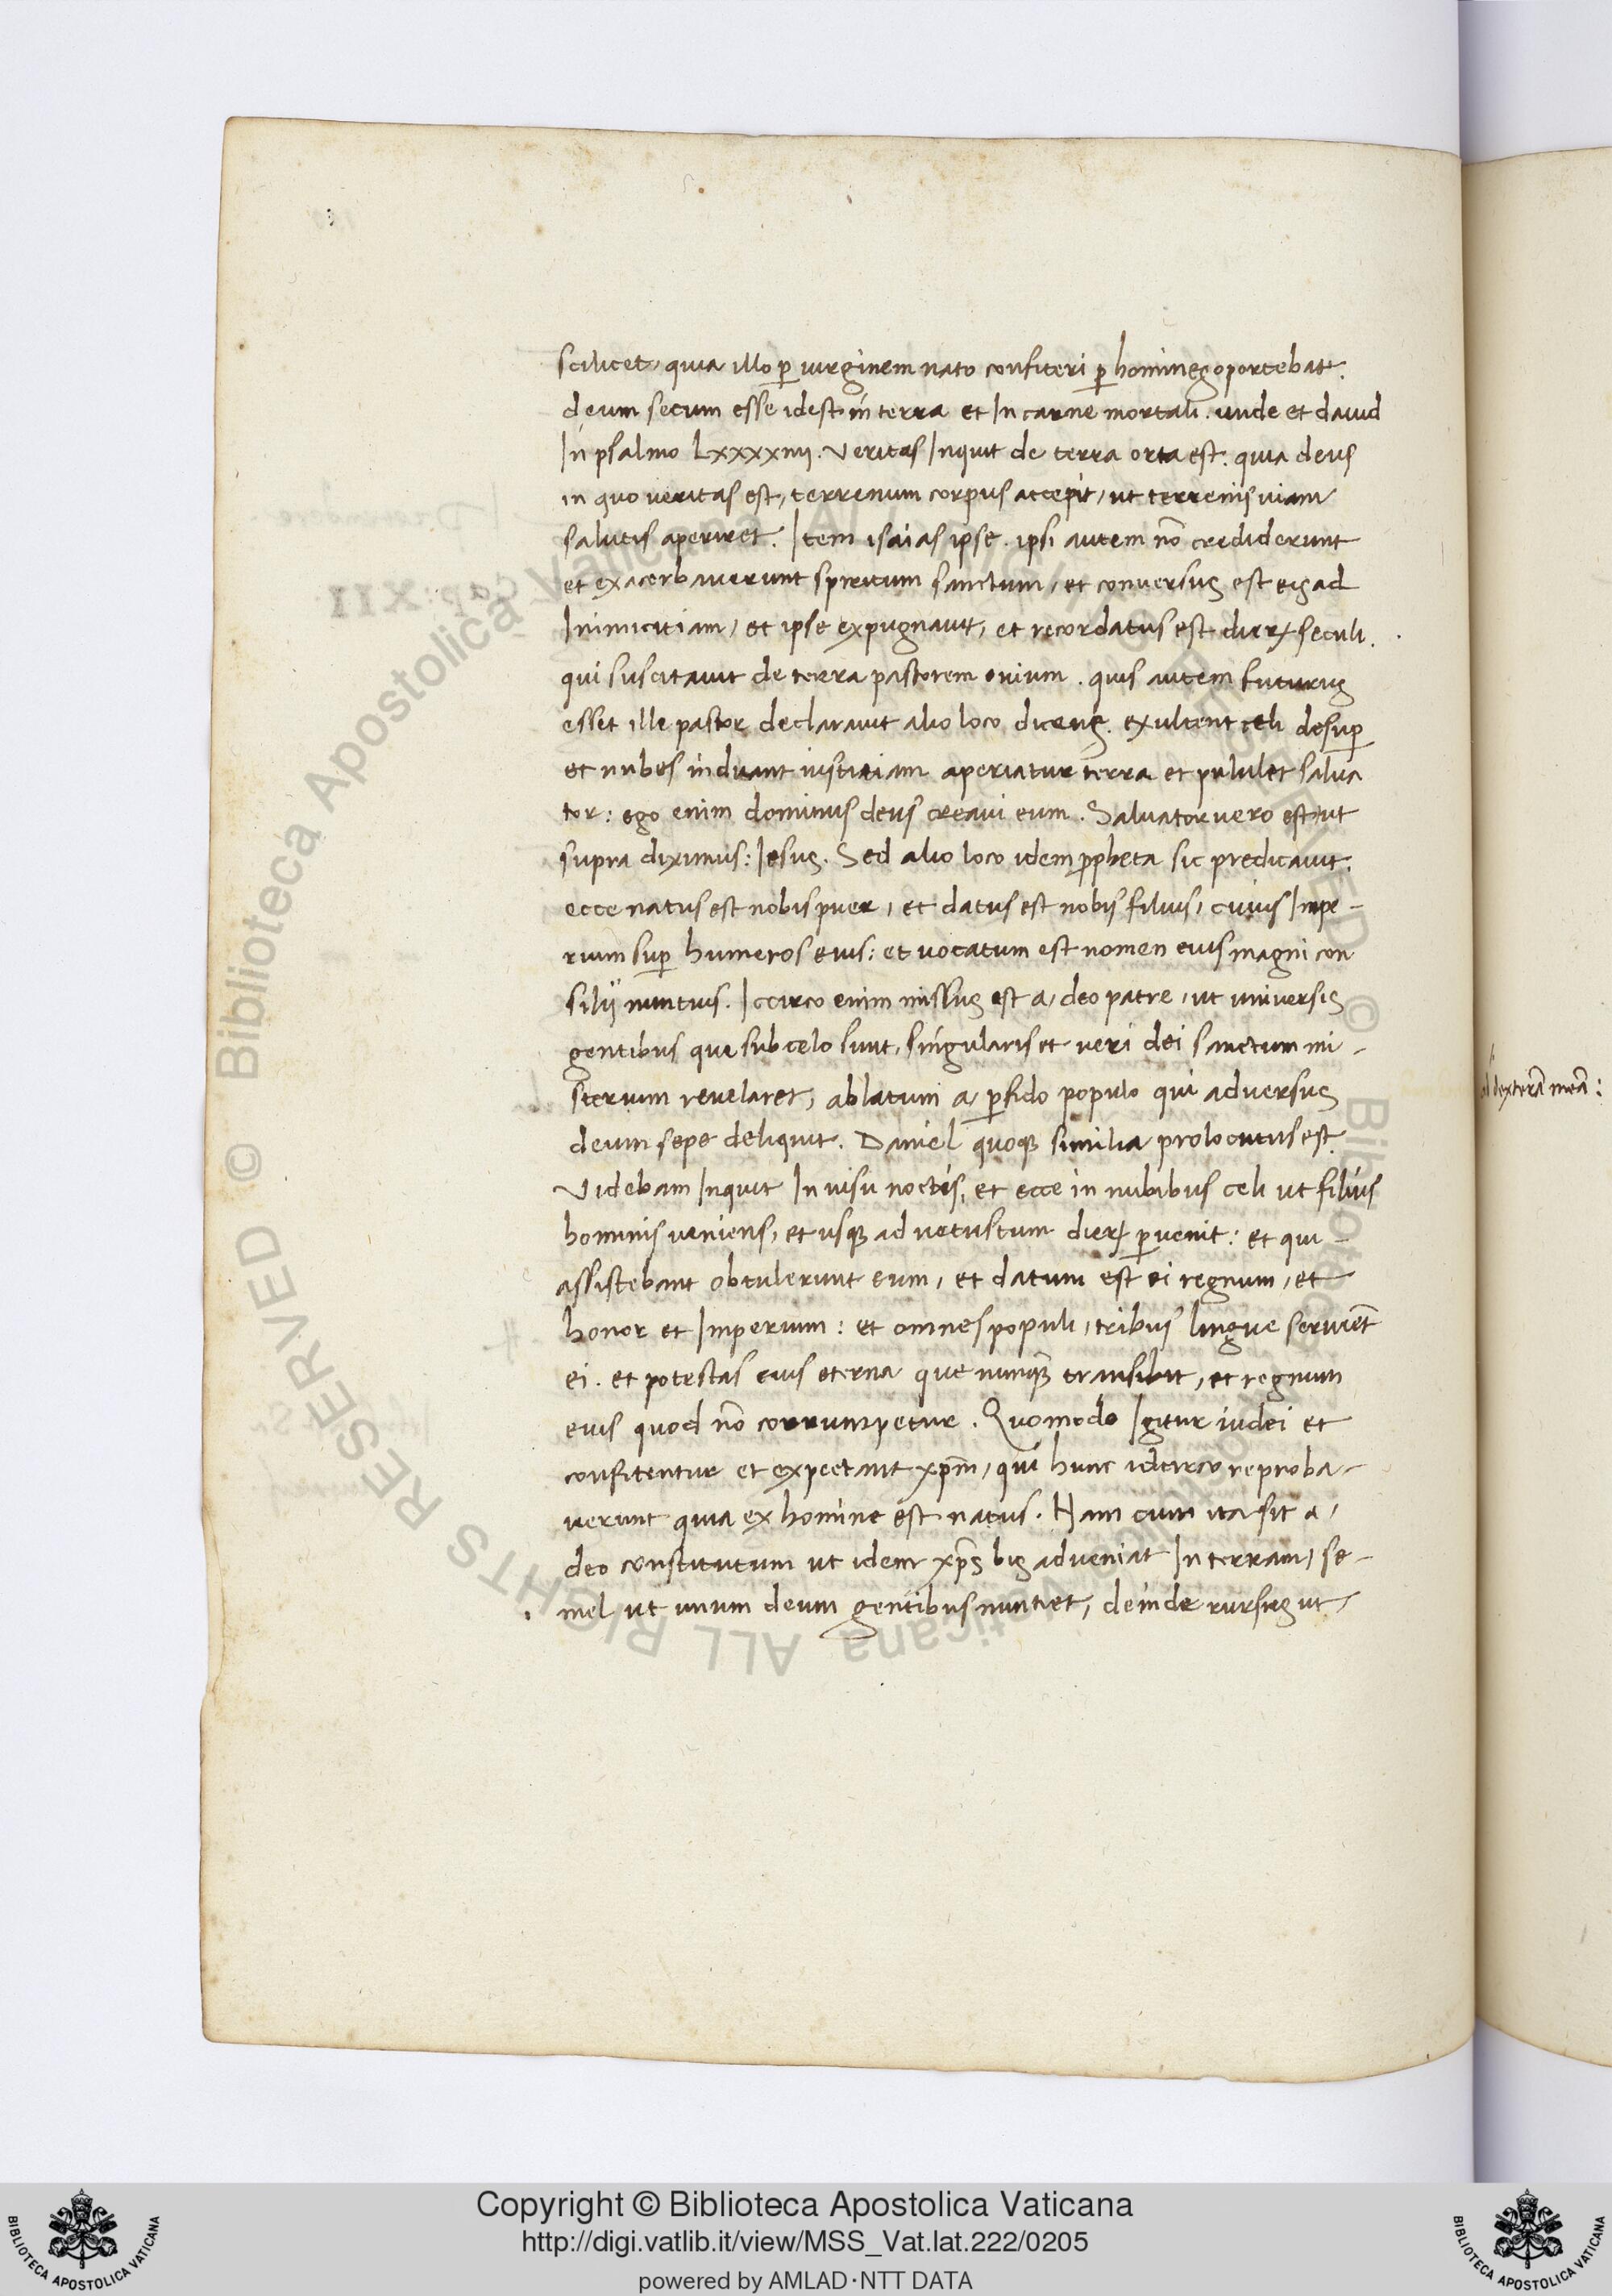 scilicet, quia illo ꝑ uirginem nato confiteri ꝑ homines oportebat.
deum secum esse idest in terra et In carne mortali. unde et dauid
In psalmo Lxxxxiiij. Veritas Inquit de terra orta est. quia deus
in quo ueritas est, terrenum corpus accepit, ut terrenis uiam
salutis aperiret. Item isaias ipse. ipsi autem nõ crediderunt
et exacerbauerunt spiritum sanctum, et conuersus est eis ad
Inimicitiam, et ipse expugnauit, et recordatus est dierꝝ seculi.
qui suscitauit de terra pastorem ouium. quis autem futurus
esset ille pastor declarauit alio loco dicens. exultent celi desuꝑ
et nubes induant iustitiam aperiatur terra et pululet salua
tor: ego enim dominus deus creaui eum. Saluator uero est ut
supra diximus: Iesus. Sed alio loco idem ꝓpheta sic predicauit.
ecce natus est nobis puer, et datus est nobis filius, cuius Impe-
rium suꝑ humeros eius: et uocatum est nomen eius magni con
silij nuntius. Iccirco enim missus est a, deo patre, ut uniuersis
gentibus que sub celo sunt, singularis et ueri dei sanctum mi-
sterium reuelaret, ablatum a, ꝑfido populo qui aduersus
deum sepe deliquit. Daniel quoqꝫ similia prolocutus est.
Videbam Inquit In uisu noctis, et ecce in nubibus celi ut filius
hominis ueniens, et usqꝫ ad uetustum dierꝝ ꝑuenit: et qui-
assistebant obtulerunt eum, et datum est ei regnum, et
honor et Imperium: et omnes populi, tribus lingue seruiẽt
ei. et potestas eius eterna que nunqꝫ transibit, et regnum
eius quod nõ corrumpetur. Quomodo Igitur iudei et
confitentur et expectant xp̃m, qui hunc idcirco reproba-
uerunt quia ex homine est natus. Nam cum ita sit a,
deo constitutum ut idem xp̃s bis adueniat In terram, se-
mel ut unum deum gentibus nuntiet, deinde rursus ut,
dexterã meã:
© Biblioteca Apostolica Vaticana ALL RIGHTS RESERVED
Copyright © Biblioteca Apostolica Vaticana
http://digi.vatlib.it/view/MSS_Vat.lat.222/0205
powered by AMLAD·NTT DATA
BIBLIOTECA APOSTOLICA VATICANA
BIBLIOTECA APOSTOLICA VATICANA